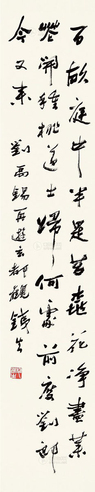 百畝庭中半是苔桃花净盡菜
花開種桃道士歸何處前度劉郎
今又来
劉禹錫再遊玄都觀錢生